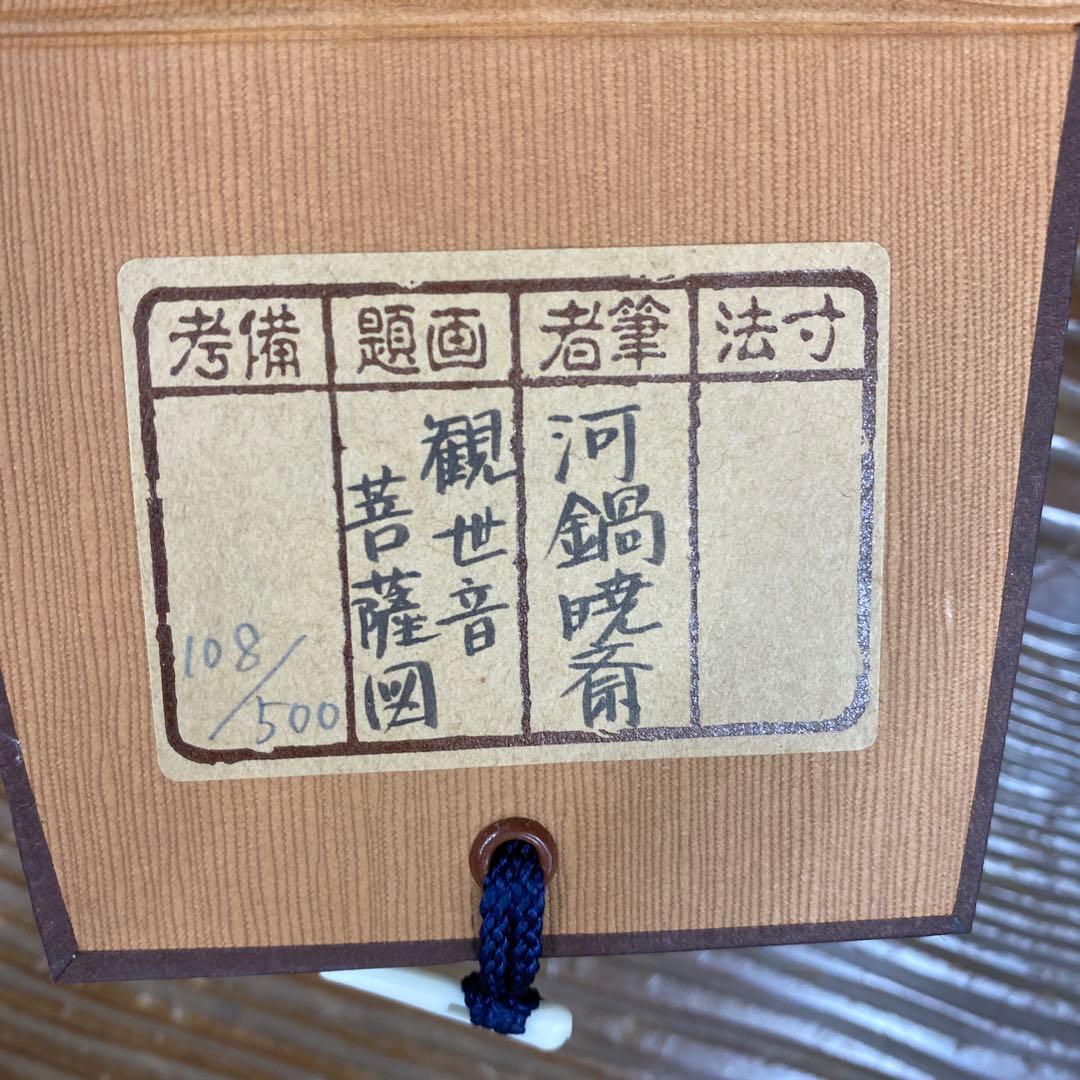 寸法
筆者
河鍋暁斎
画題
観世音
菩薩図
備考
108/500